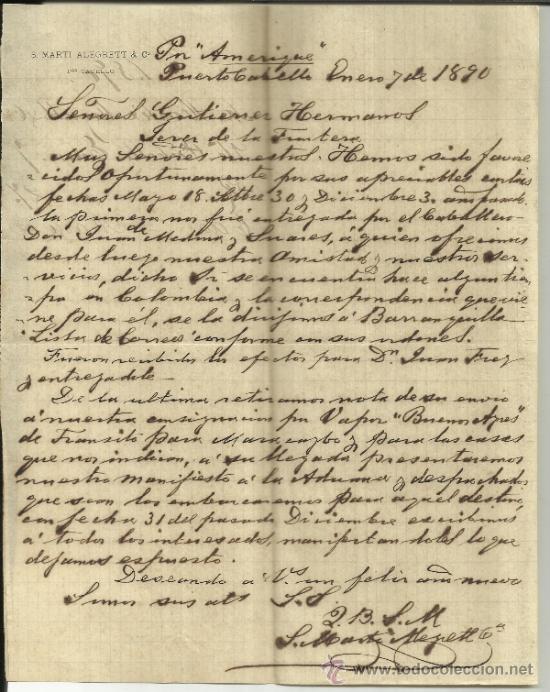 S. MARTI ALEGRETT & Cª
PTO CABELLO
Pr "Amerique"
Puerto Cabello Enero 7 de 1890
Señores Gutierrez Hermanos
Jerez de la Frontera
Muy Señores nuestros. Hemos sido favore
cidos oportunamente por sus apreciables cartas
fechas Mayo 18. Setbre 30 y Diciembre 3. año pasado
la primera nos fué entregada por el Caballero
Don Juan de Medina y Suares, á quien ofrecimos
desde luego nuestra Amistad y nuestros ser-
vicios, dicho Sr se encuentra hace algun tiem
po en Colombia y la correspondencia que vie
ne para él, se la dirijimos á Barranquilla
Lista de Correos conforme con sus ordenes.
Fueron recibidos los efectos para Dn Juan Frey
y entregadole
De la ultima retiramos nota de su envio
á nuestra consignacion pr Vapor "Buenos Ayres"
de transito para Maracaybo y para las casas
que nos indican, á su llegada presentaremos
nuestro manifiesto á la Aduana y despachados
que sean los embarcaremos para aquel destino,
con fecha 31 del pasado Diciembre escribimos
á todos los interesados, manifestandoles lo que
dejamos espuesto.
Deseando á Vs. un feliz año nuevo
Somos sus ats S.S
Q.B.S.M
S. Marti Alegrett Cª
todocoleccion.net